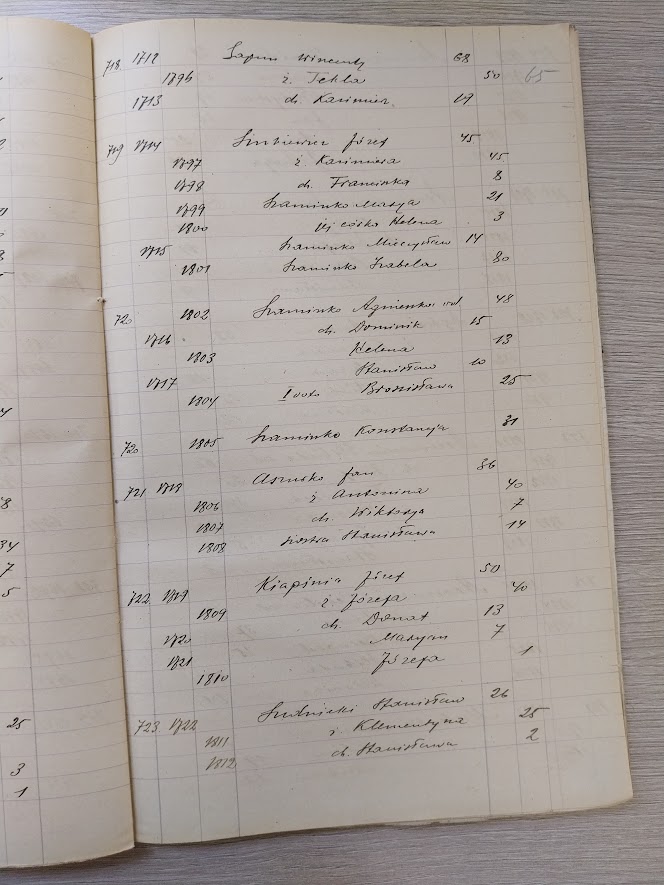 718 1712 Łapun Wincenty 68
1796 ż. Tekla 50 65
1713 ch. Kazimierz 19
719 1714 Sinkiewicz Józef 45
1797 ż Kazimiera 45
1798 ch. Franciszka 8
1799 Szaminko Marya 21
1800 jej córka Helena 3
1715 Szaminko Mieczysław 14
1801 Szaminko Izabela 80
720 1802 Szaminko Agnieszka 48
ch. Dominik 15
1716 Helena 13
1803 Stanisław 10
1717 I voto Bronisława 25
1804
720 1805 Szaminko Konstancja 31
721 1718 Jan 36
1806 ż Antonina 40
1807 ch. Wiktorja 7
1808 siostra Stanisława 14
722 1719 Józef 50
1809 ż Józefa 40
ch. Donat 13
1720 Maryan 7
1721 Józefa 1
1810
723 1722 Sudnicki Stanisław 26
1811 ż Klementyna 25
1812 ch. Stanisława 2
25
3
1
8
34
7
5